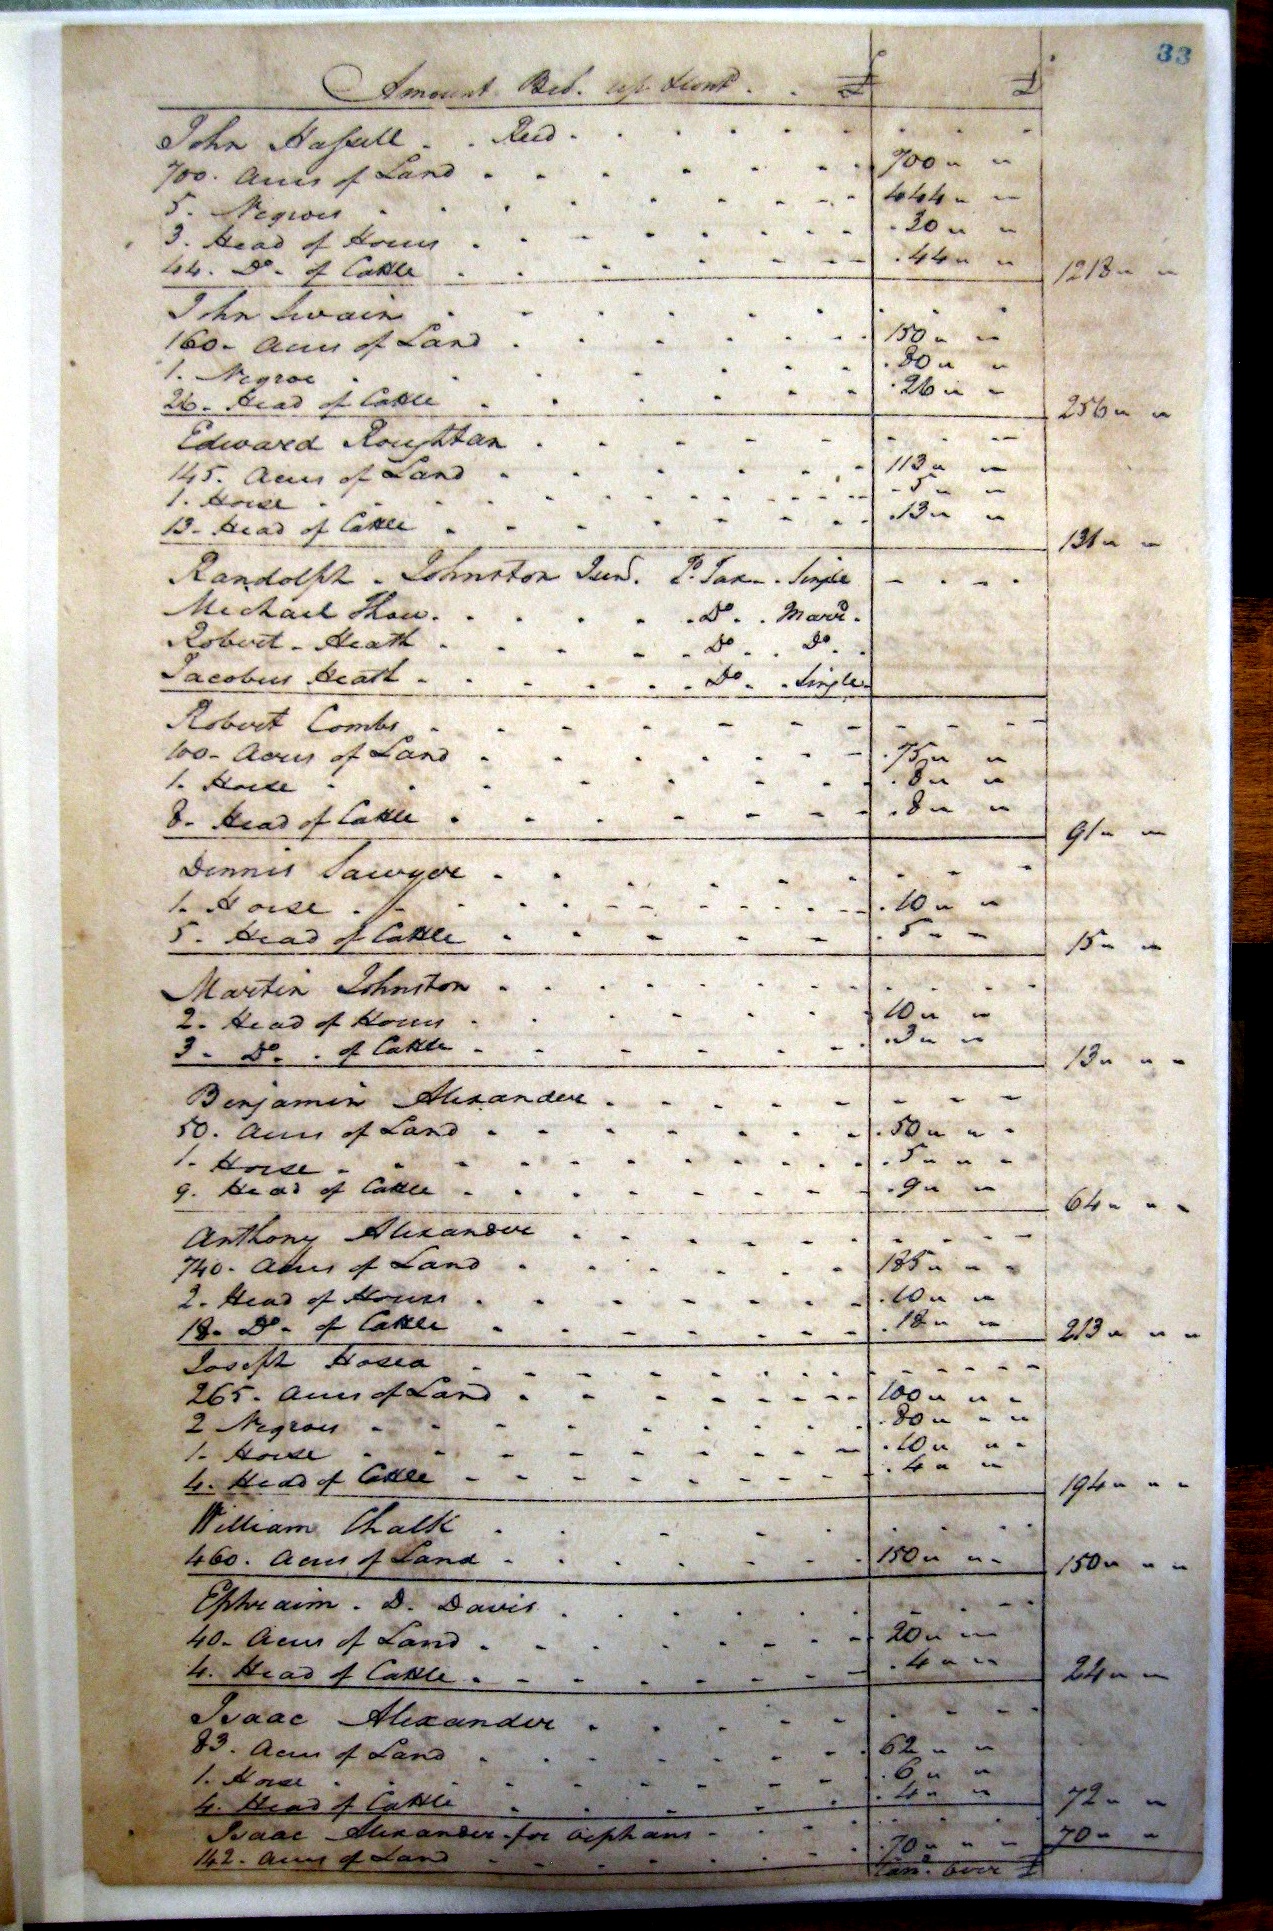 33
Amount Bro. up £ £
John Hassell . . Recd
700. Acres of Land 700 " "
5. Negroes 444 " "
3. Head of Horses 30 " "
44. Do. of Cattle 44 " " 1218 " "
John Swain
160. Acres of Land 150 " "
1. Negroe 80 " "
26. Head of Cattle 26 " " 256 " "
Edward Roughtan
145. Acres of Land 113 " "
1. Horse 5 " "
13. Head of Cattle 13 " " 131 " "
Randolph Johnston Junr. P. Tax Single
Michael Do. Marrd.
Robert Heath Do. Do.
Jacobus Heath Do. Single
Robert Combs
100. Acres of Land 75 " "
1. Horse 8 " "
8. Head of Cattle 8 " " 91 " "
Dennis Sawyer
1. Horse 10 " "
5. Head of Cattle 5 " " 15 " "
Martin Johnston
2. Head of Horses 10 " "
3. Do. of Cattle 3 " " 13 " "
Benjamin Alexander
50. Acres of Land 50 " "
1. Horse 5 " "
9. Head of Cattle 9 " " 64 " "
Anthony Alexander
740. Acres of Land 185 " "
2. Head of Horses 10 " "
18. Do. of Cattle 18 " " 213 " "
Joseph Hosea
265. Acres of Land 100 " "
2 Negroes 80 " "
1. Horse 10 " "
4. Head of Cattle 4 " " 194 " "
William Chalk
460. Acres of Land 150 " " 150 " "
Ephraim. D. Davis
40. Acres of Land 20 " "
4. Head of Cattle 4 " " 24 " "
Isaac Alexander
83. Acres of Land 62 " "
1. Horse 6 " "
4. Head of Cattle 4 " " 72 " "
Isaac Alexander for orphans
142. Acres of Land 70 " " 70 " "
Carr. over £